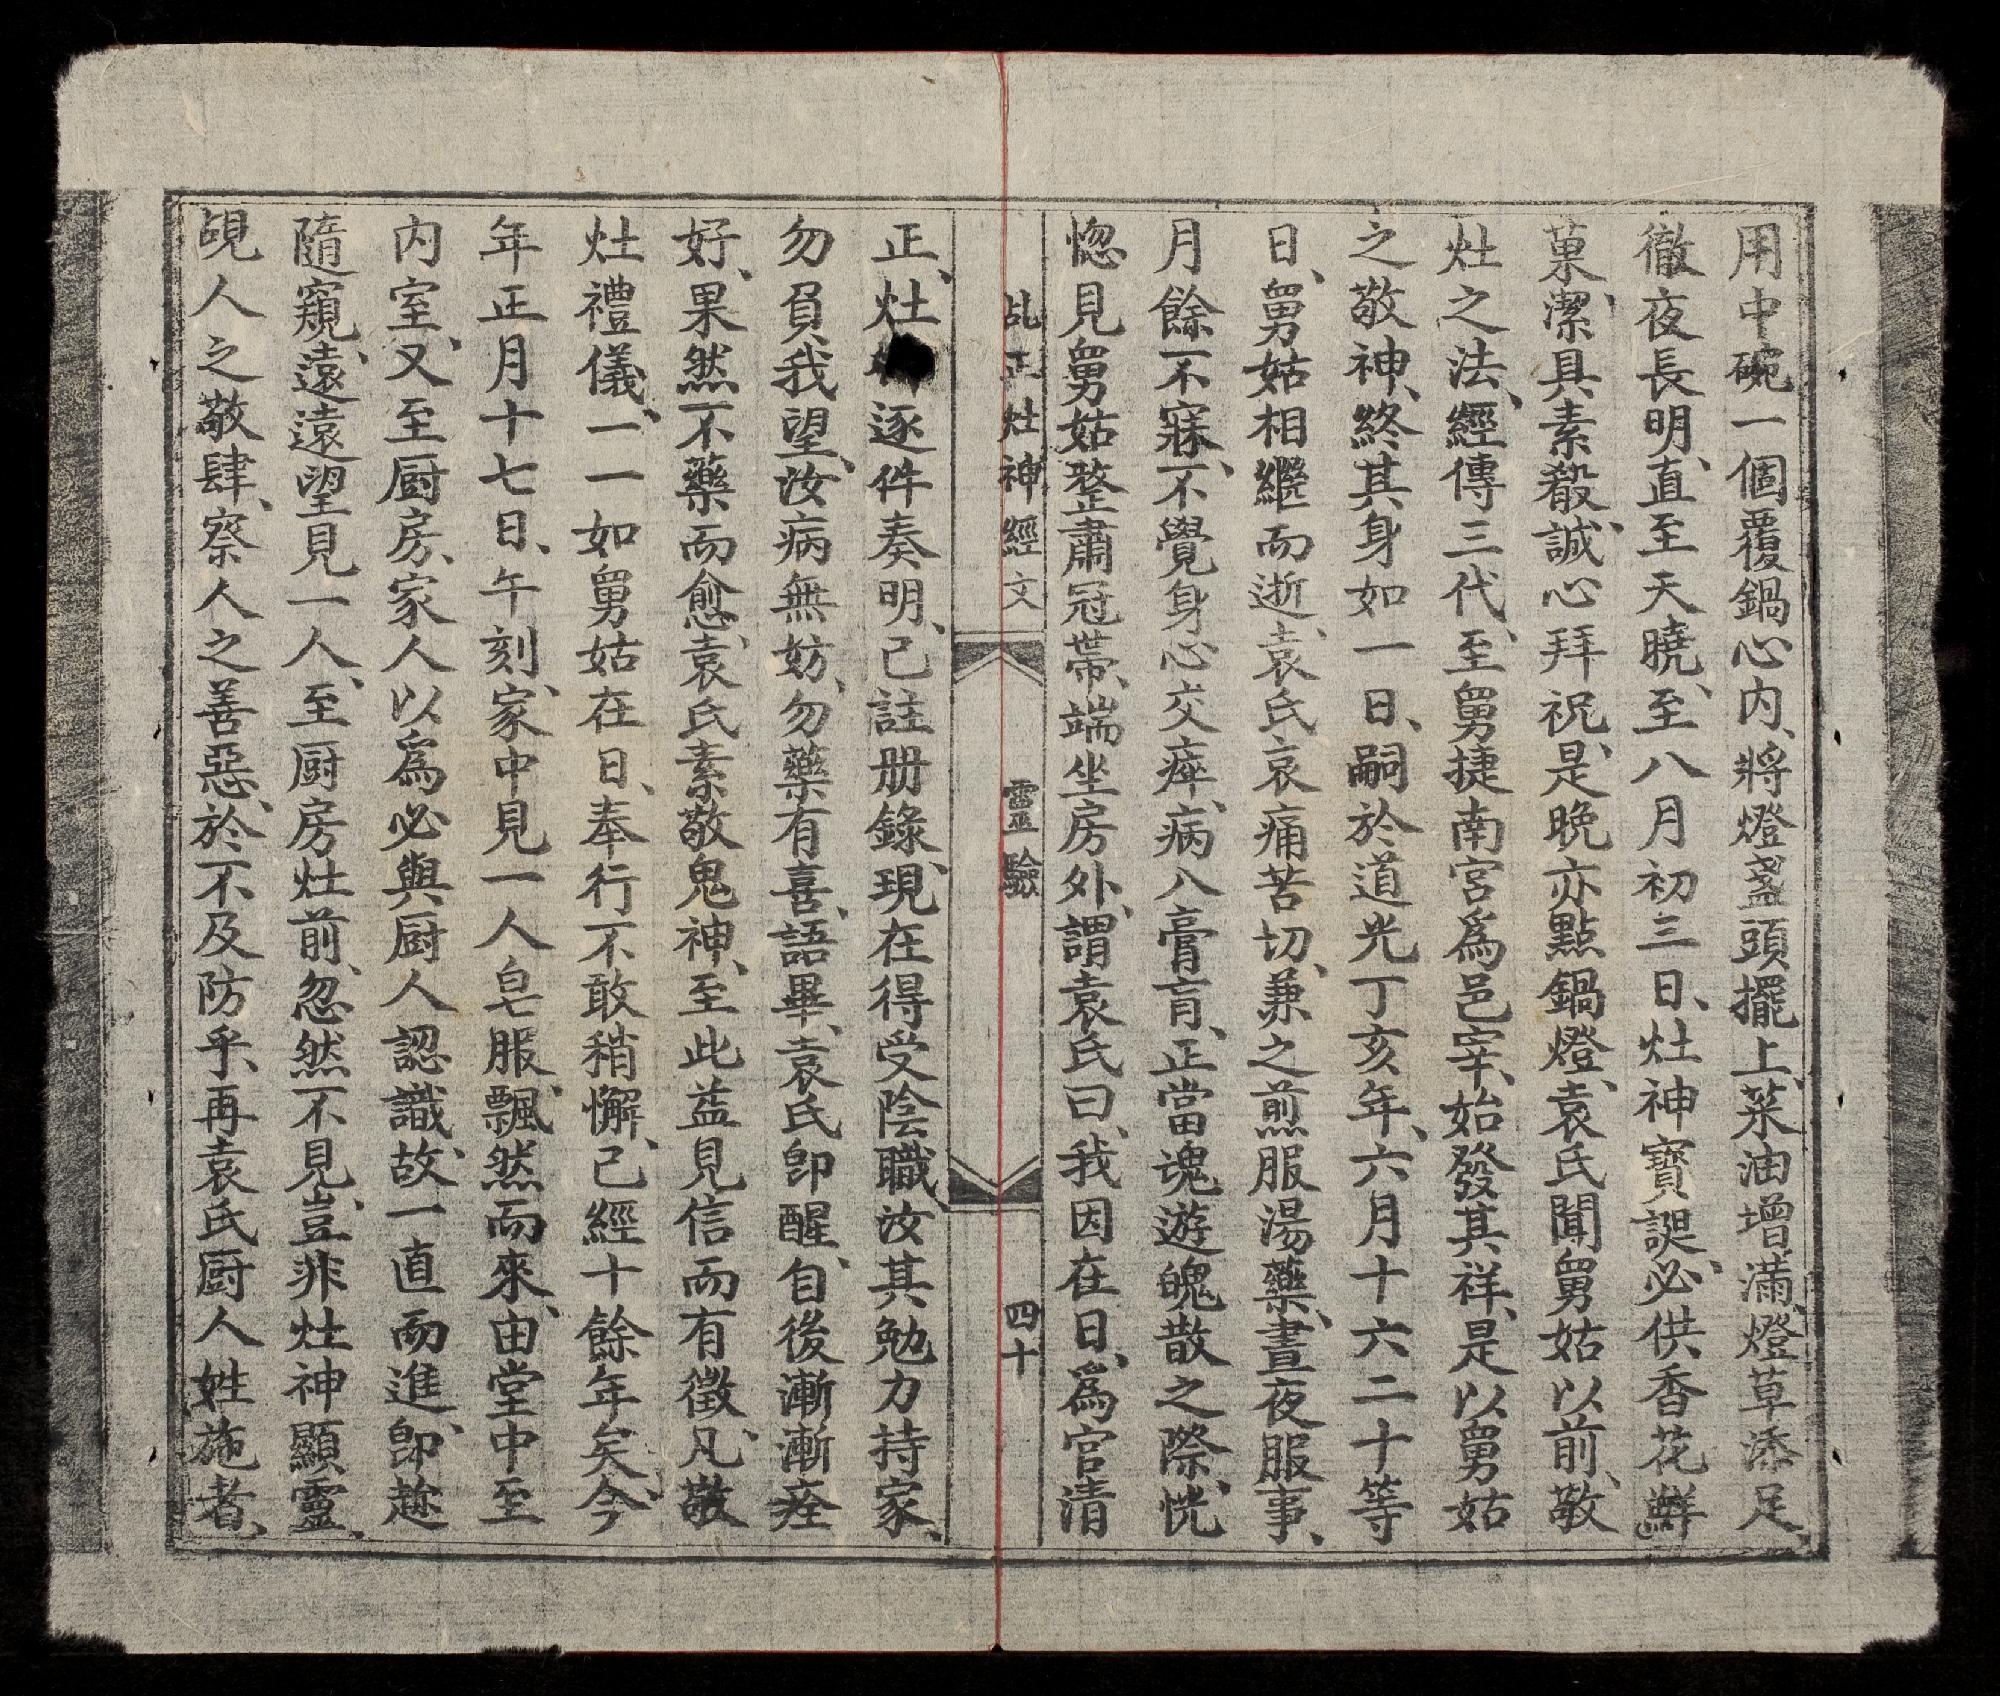 用中碗一個覆鍋心内、將燈盞頭擺上、菜油增滿、燈草添足、
徹夜長明、直至天曉、至八月初三日、灶神寶誕、必供香花鮮
菓、潔具素殽、誠心拜祝、是晚亦點鍋燈、袁氏聞舅姑以前、敬
灶之法、經傳三代、至舅捷南宮爲邑宰、始發其祥、是以舅姑
之敬神、終其身如一日、嗣於道光丁亥年、六月十六二十等
日、舅姑相繼而逝、袁氏哀痛苦切、兼之煎服湯藥、晝夜服事、
月餘不寐、不覺身心交瘁、病八膏肓、正當魂遊魄散之際、恍
惚見舅姑整肅冠帶、端坐房外、謂袁氏曰、我因在日、爲官清
乩正灶神經文 靈驗 四十
正、灶逐件奏明、已註册錄、現在得受陰職、汝其勉力持家、
勿負我望、汝病無妨、勿藥有喜、語畢、袁氏卽醒、自後漸漸痊
好、果然不藥而愈、袁氏素敬鬼神、至此益見信而有徵、凡敬
灶禮儀、一一如舅姑在日、奉行不敢稍懈、已經十餘年矣、今
年正月十七日、午刻、家中見一人皂服、飄然而來、由堂中至
内室、又至厨房、家人以爲必與厨人認識、故一直而進、卽趂
隨窺、遠遠望見一人、至厨房灶前、忽然不見、豈非灶神顯靈、
覘人之敬肆、察人之善惡、於不及防乎、再袁氏厨人姓施者、